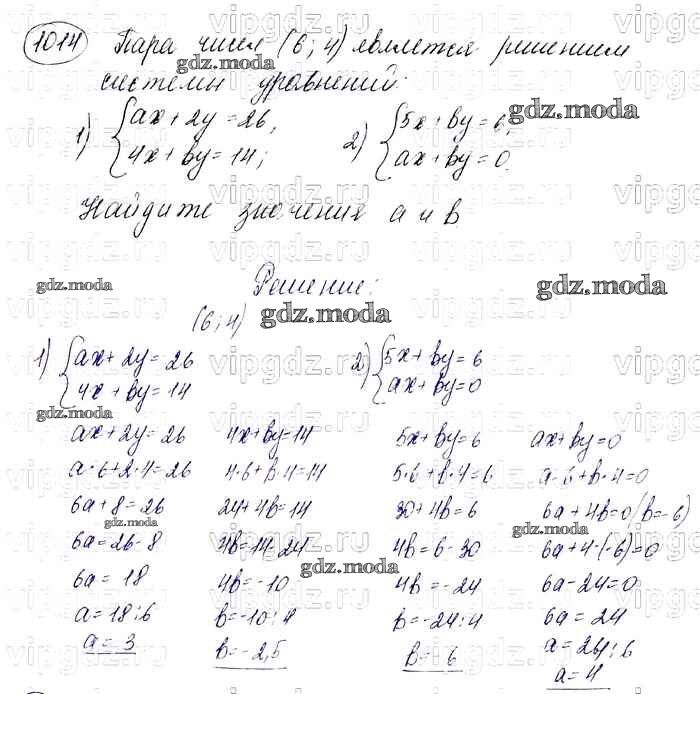 1014 Пара чисел (6; 4) является решением
системы уравнений:
1) { ax + 2y = 26,
4x + by = 14;
2) { 5x + by = 6,
ax + by = 0.
Найдите значения a и b
Решение:
(6; 4)
1) { ax + 2y = 26
4x + by = 14
2) { 5x + by = 6
ax + by = 0
ax + 2y = 26
a·6 + 2·4 = 26
6a + 8 = 26
6a = 26 - 8
6a = 18
a = 18 : 6
a = 3
4x + by = 14
4·6 + b·4 = 14
24 + 4b = 14
4b = 14 - 24
4b = -10
b = -10 : 4
b = -2,5
5x + by = 6
5·6 + b·4 = 6
30 + 4b = 6
4b = 6 - 30
4b = -24
b = -24 : 4
b = -6
ax + by = 0
a·6 + b·4 = 0
6a + 4b = 0 (b = -6)
6a + 4·(-6) = 0
6a - 24 = 0
6a = 24
a = 24 : 6
a = 4
gdz.moda
vipgdz.ru